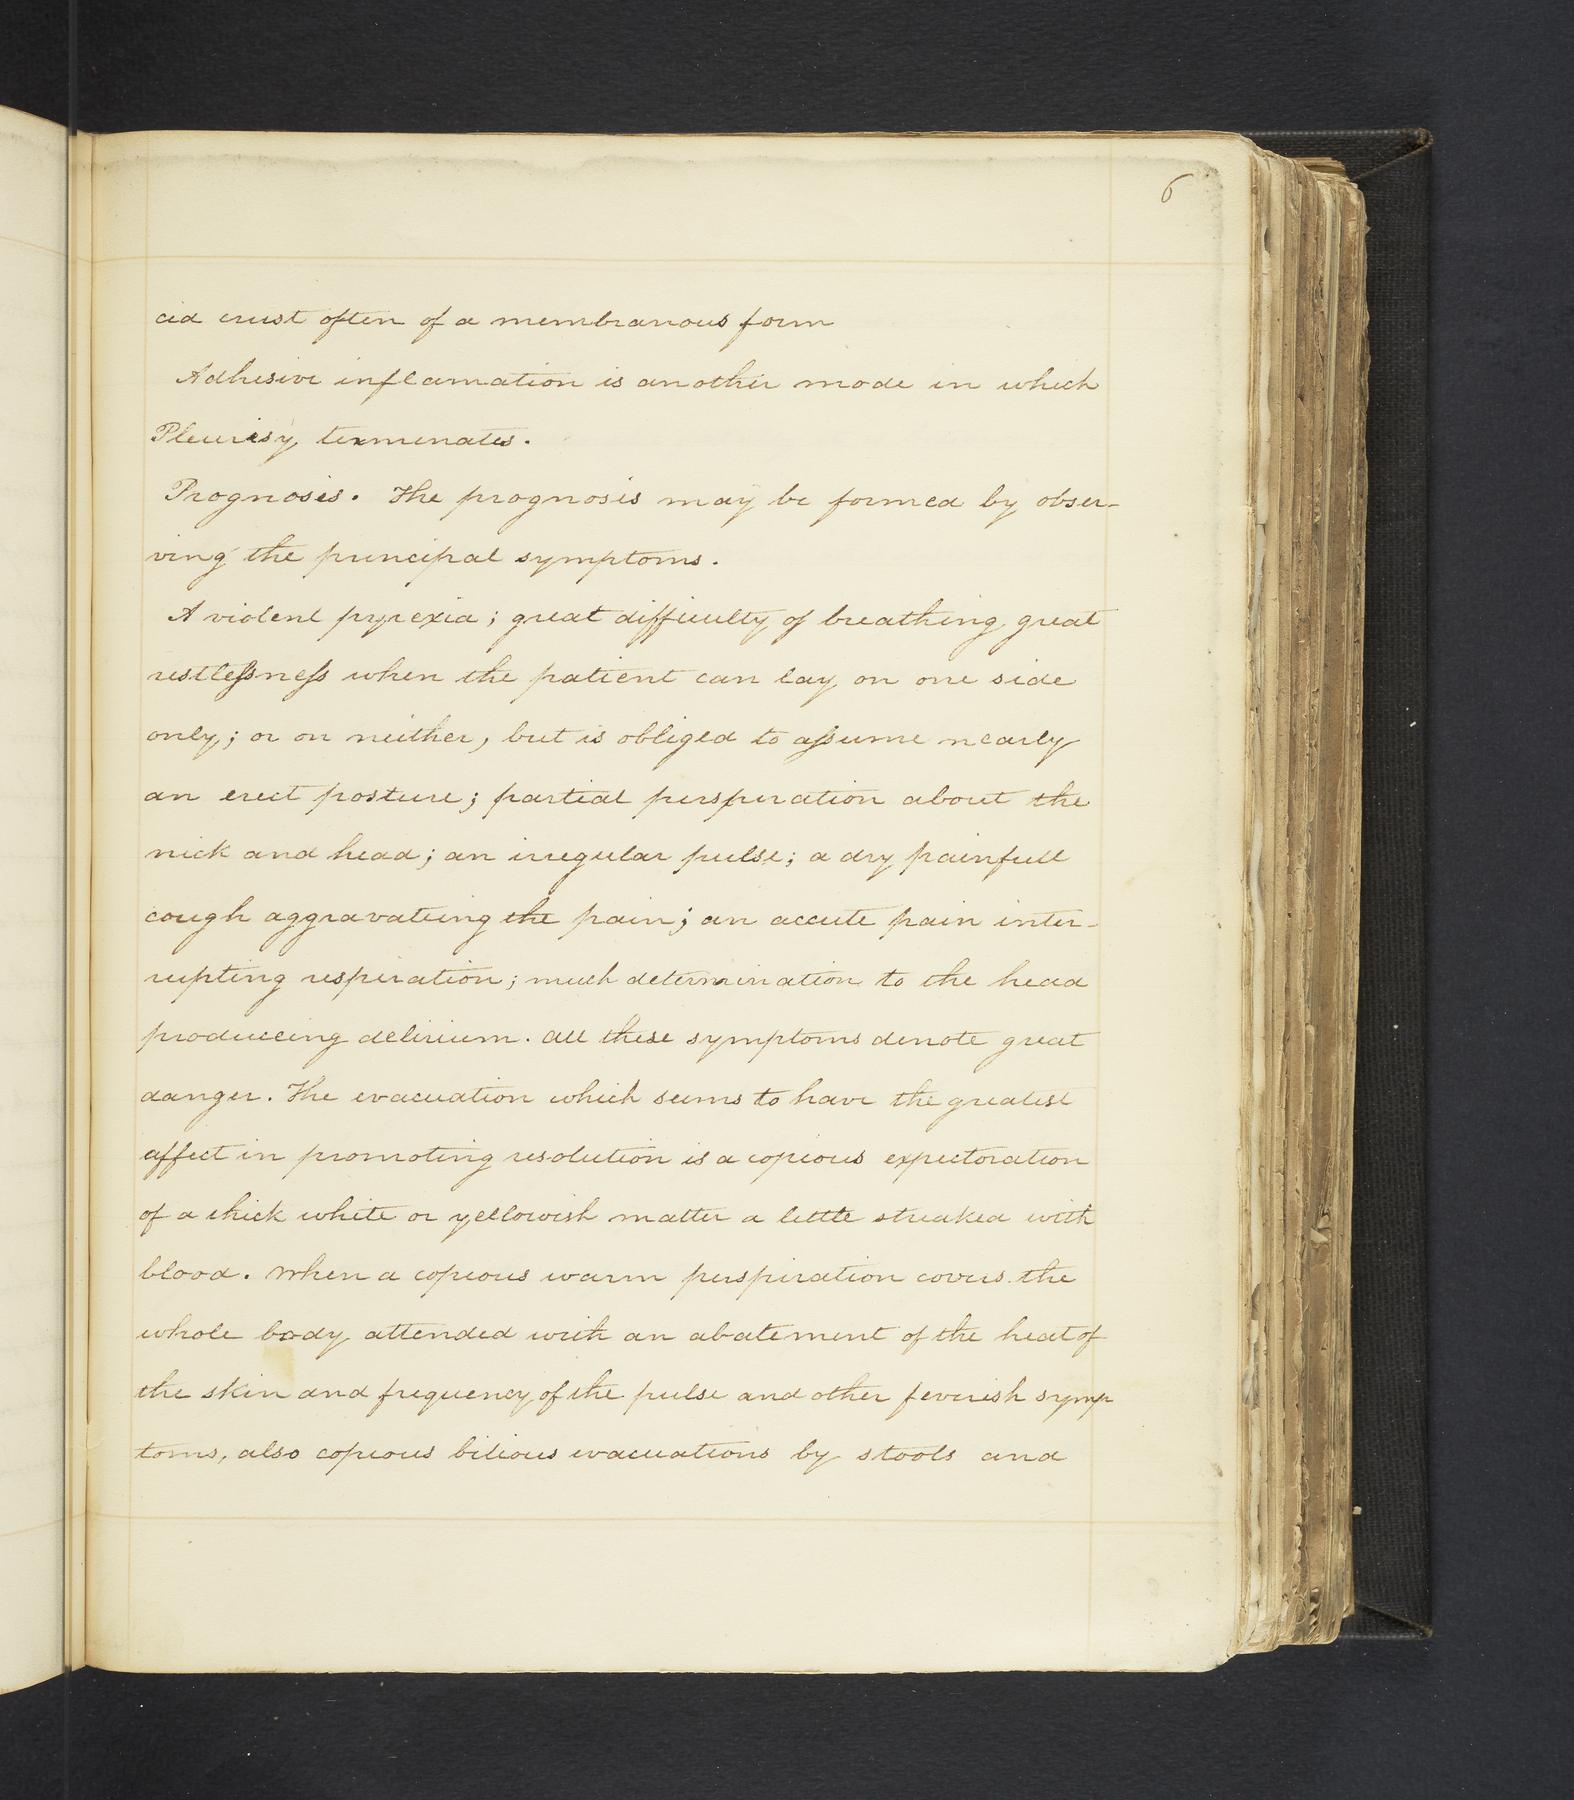 6
cid crust often of a membranous form
Adhesive inflamation is another mode in which
Pleurisy terminates.
Prognosis. The prognosis may be formed by obser-
ving the principal symptoms.
A violent pyrexia; great difficulty of breathing great
restlessness when the patient can lay on one side
only; or on neither, but is obliged to assume nearly
an erect posture; partial perspiration about the
nick and head; an irregular pulse; a dry painfull
cough aggravateing the pain; an accute pain inter-
rupting respiration; much determination to the head
produceing delirium. All these symptoms denote great
danger. The evacuation which seems to have the greatest
affect in promoting resolution is a copious expectoration
of a thick white or yellowish matter a little streaked with
blood. When a copious warm perspiration covers the
whole body attended with an abatement of the heat of
the skin and frequency of the pulse and other feverish symp
toms, also copious bilious evacuations by stools and